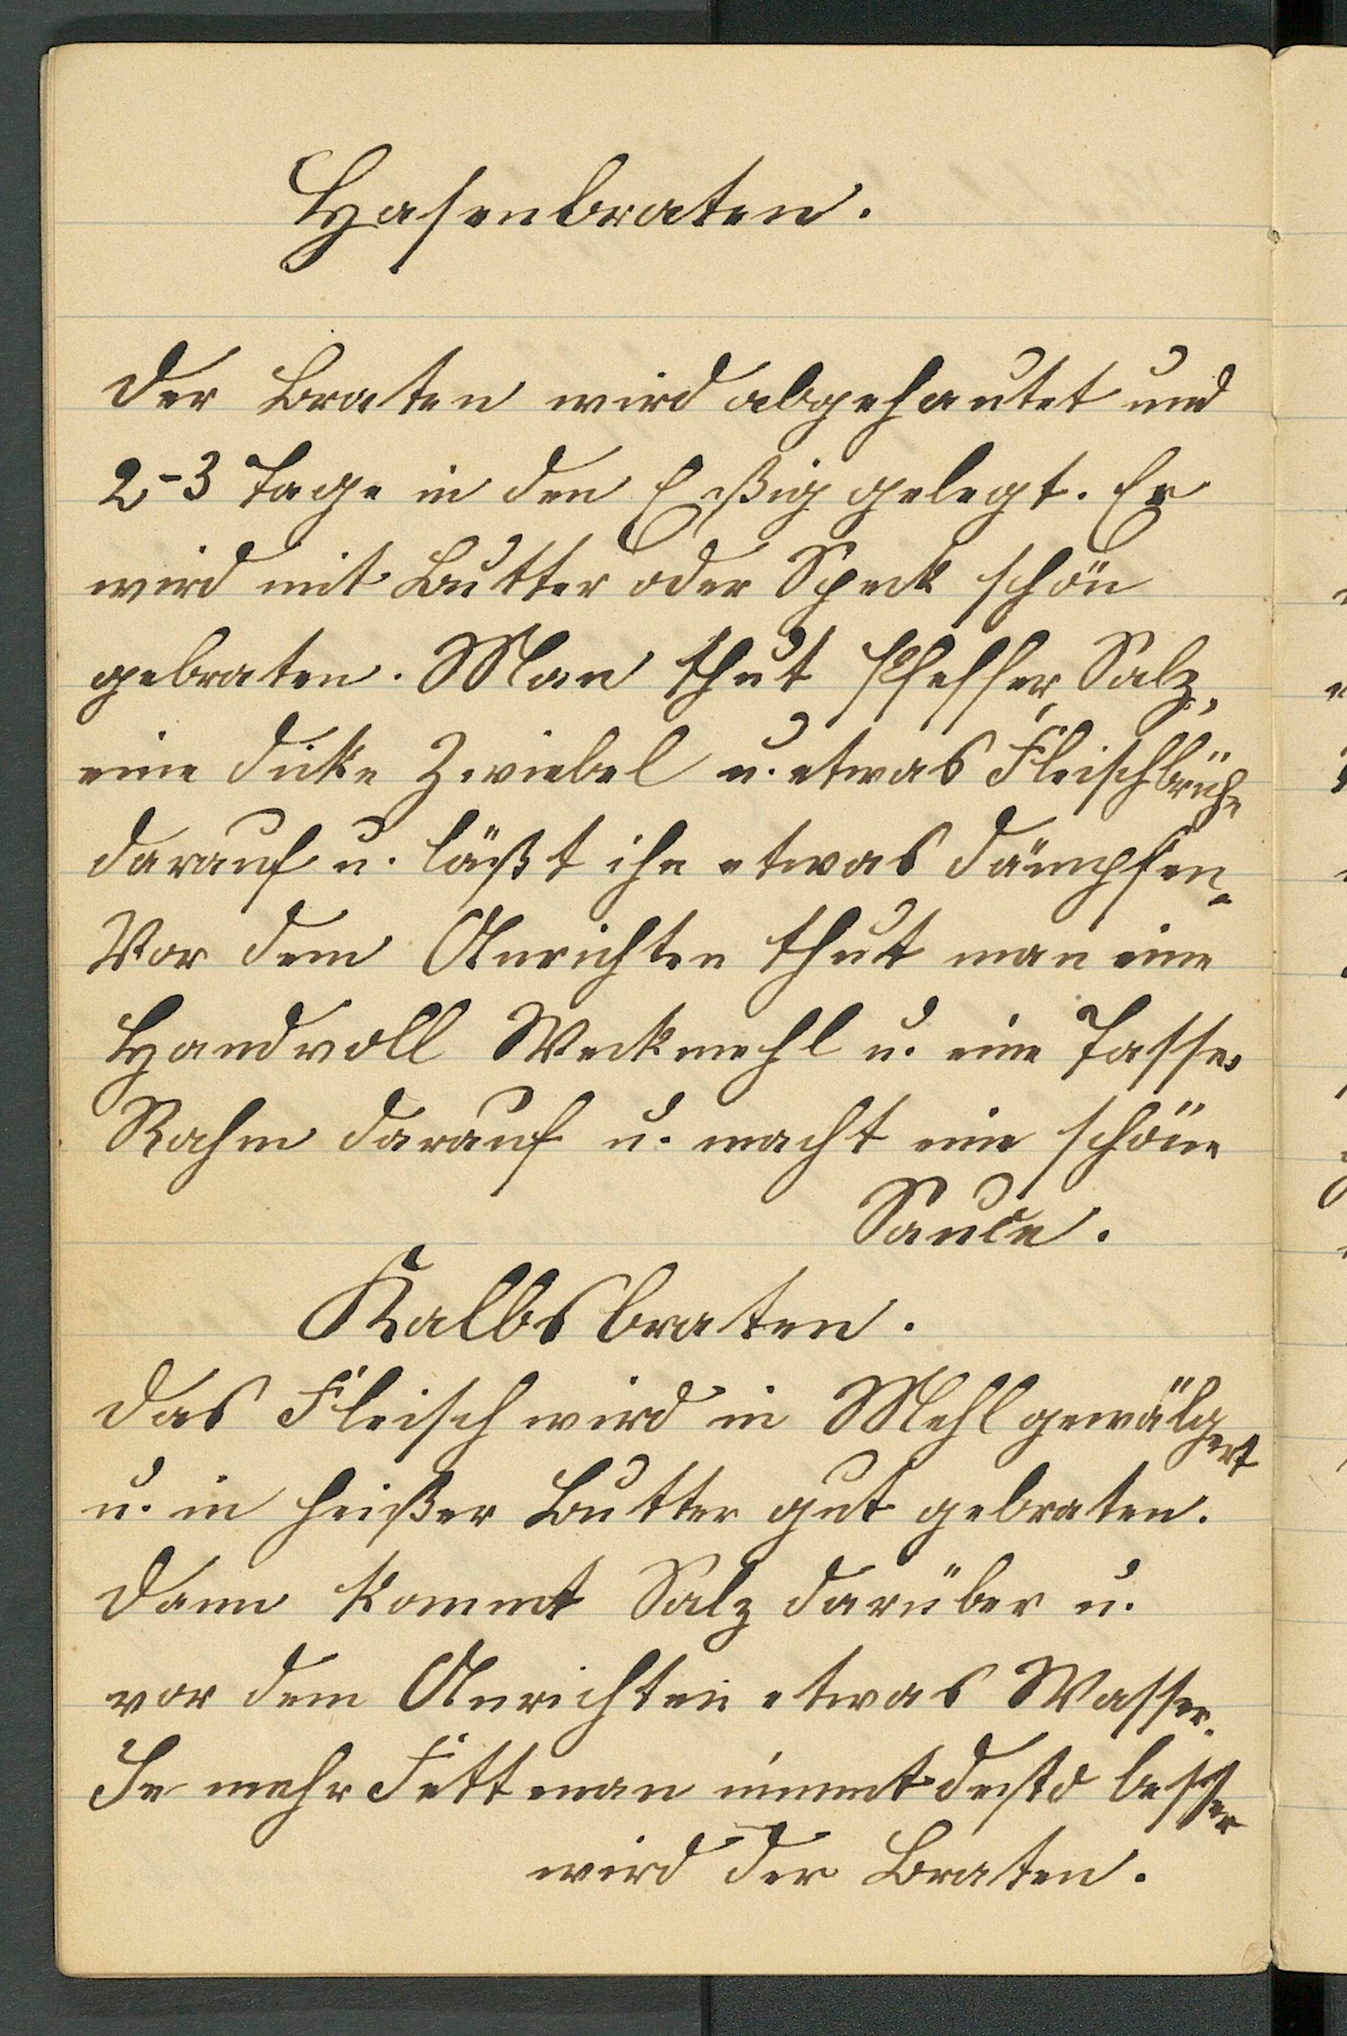 Hasenbraten.
Der Braten wird abgehautet und
2-3 Tage in den Eßig gelegt. Er
wird mit Butter oder Speck schön
gebraten. Man thut Pfeffer, Salz,
eine dicke Zwiebel u. etwas Fleischbrühe
darauf u. läßt ihn etwas dämpfen.
Vor dem Anrichten thut man eine
Handvoll Weckmehl u. eine Tasse
Rahm darauf u. macht eine schöne
Sauce.
Kalbsbraten.
Das Fleisch wird in Mehl gewälgert
u. in heißer Butter gut gebraten.
Dann kommt Salz darüber u.
vor dem Anrichten etwas Wasser.
Je mehr Fett man nimmt desto besser
wird der Braten.